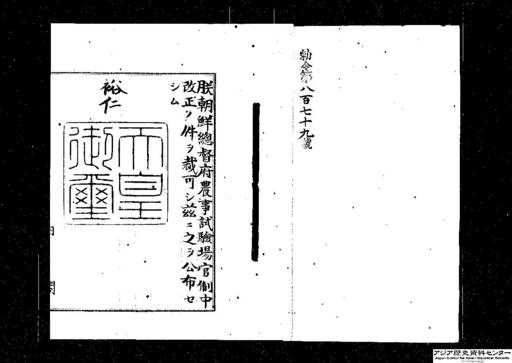 勅令第八百七十九號
朕朝鮮總督府農事試驗場官制中
改正ノ件ヲ裁可シ茲ニ之ヲ公布セ
シム
裕仁
天皇
御璽
内
閣
アジア歴史資料センター
Japan Center for Asian Historical Records